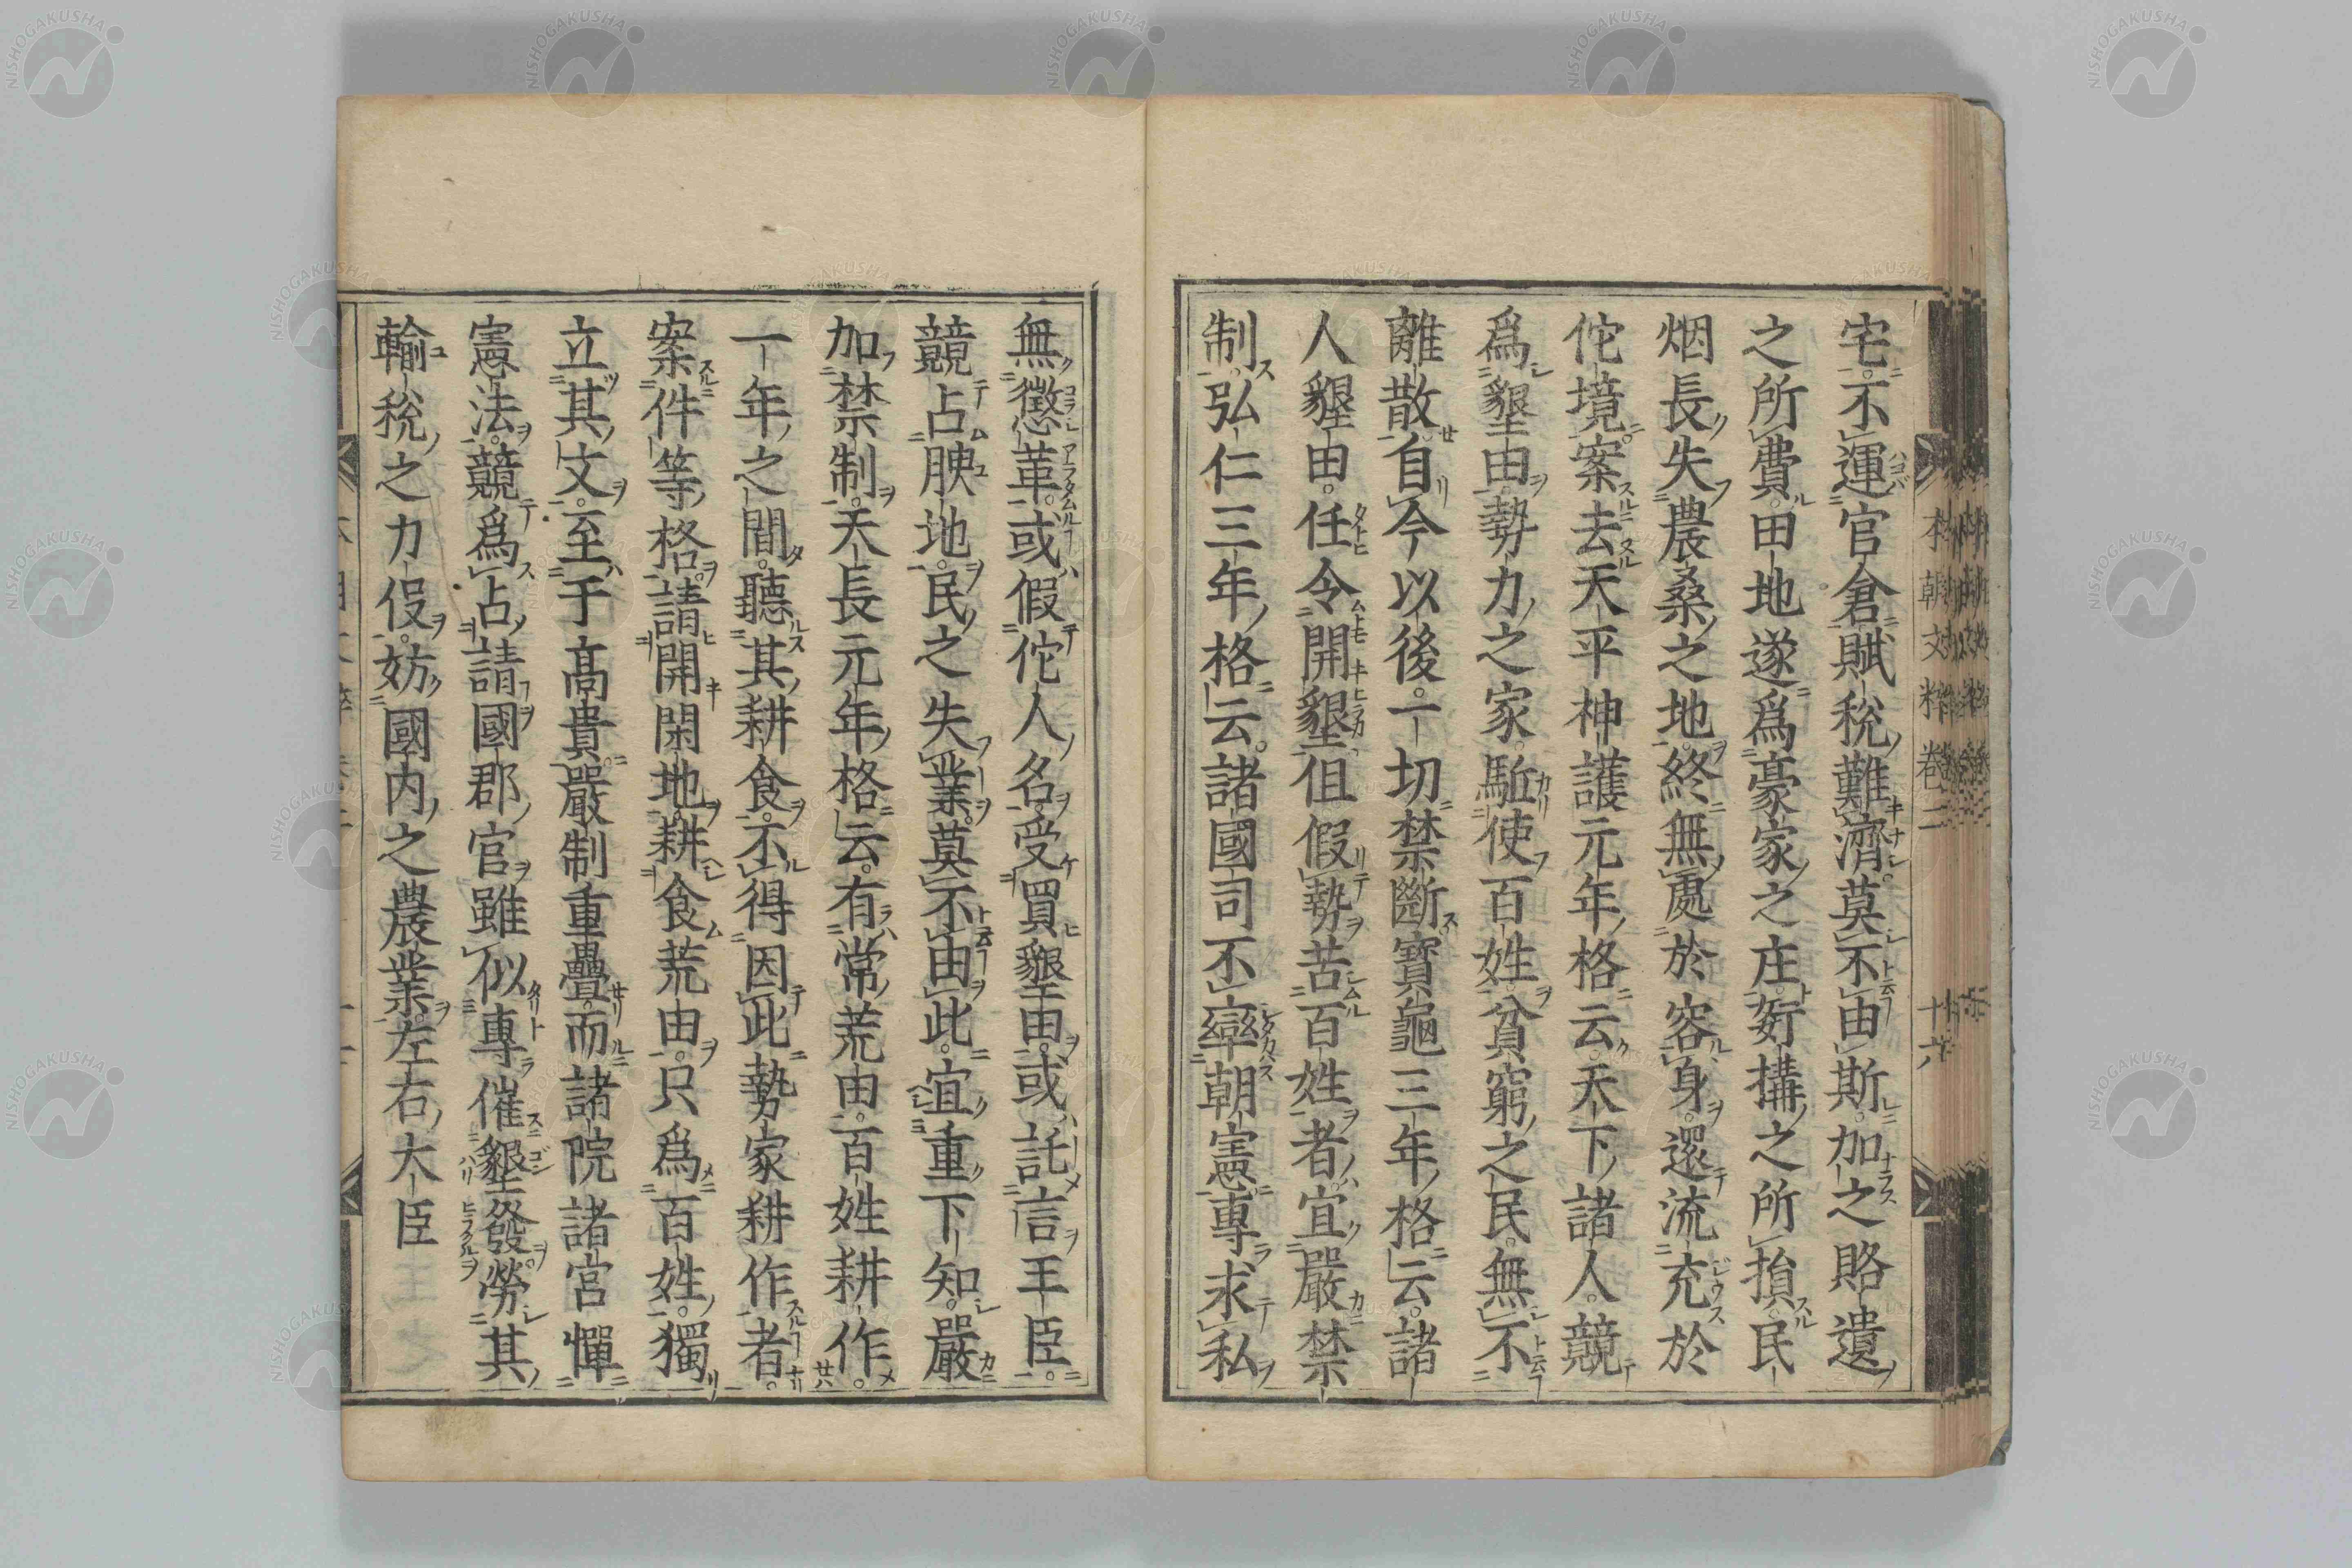 宅不運官倉賦税難濟莫不由斯加之賂遺
之所費田地遂爲豪家之庄姧搆之所損民
烟長失農桑之地終無處於容身還流充於
佗境案去天平神護元年格云天下諸人競
爲墾田勢力之家駈使百姓貧窮之民無不
離散自今以後一切禁断寳龜三年格云諸
人墾田任令開墾但假勢苦百姓者宜嚴禁
制弘仁三年格云諸國司不率朝憲專求私
無懲革或假佗人名受買墾田或託言王臣
競占腴地民之失業莫不由此宜重下知嚴
加禁制天長元年格云有常荒田百姓耕作
一年之間聽其耕食不得因此勢家耕作者
案件等格請開閑地耕食荒田只爲百姓獨
立其文至于高貴嚴制重疊而諸院諸宮憚
憲法競爲占請國郡官雖似專催墾發勞其
輸税之力伇妨國内之農業左右大臣
本朝文粹卷二
十六
NISHOGAKUSHA